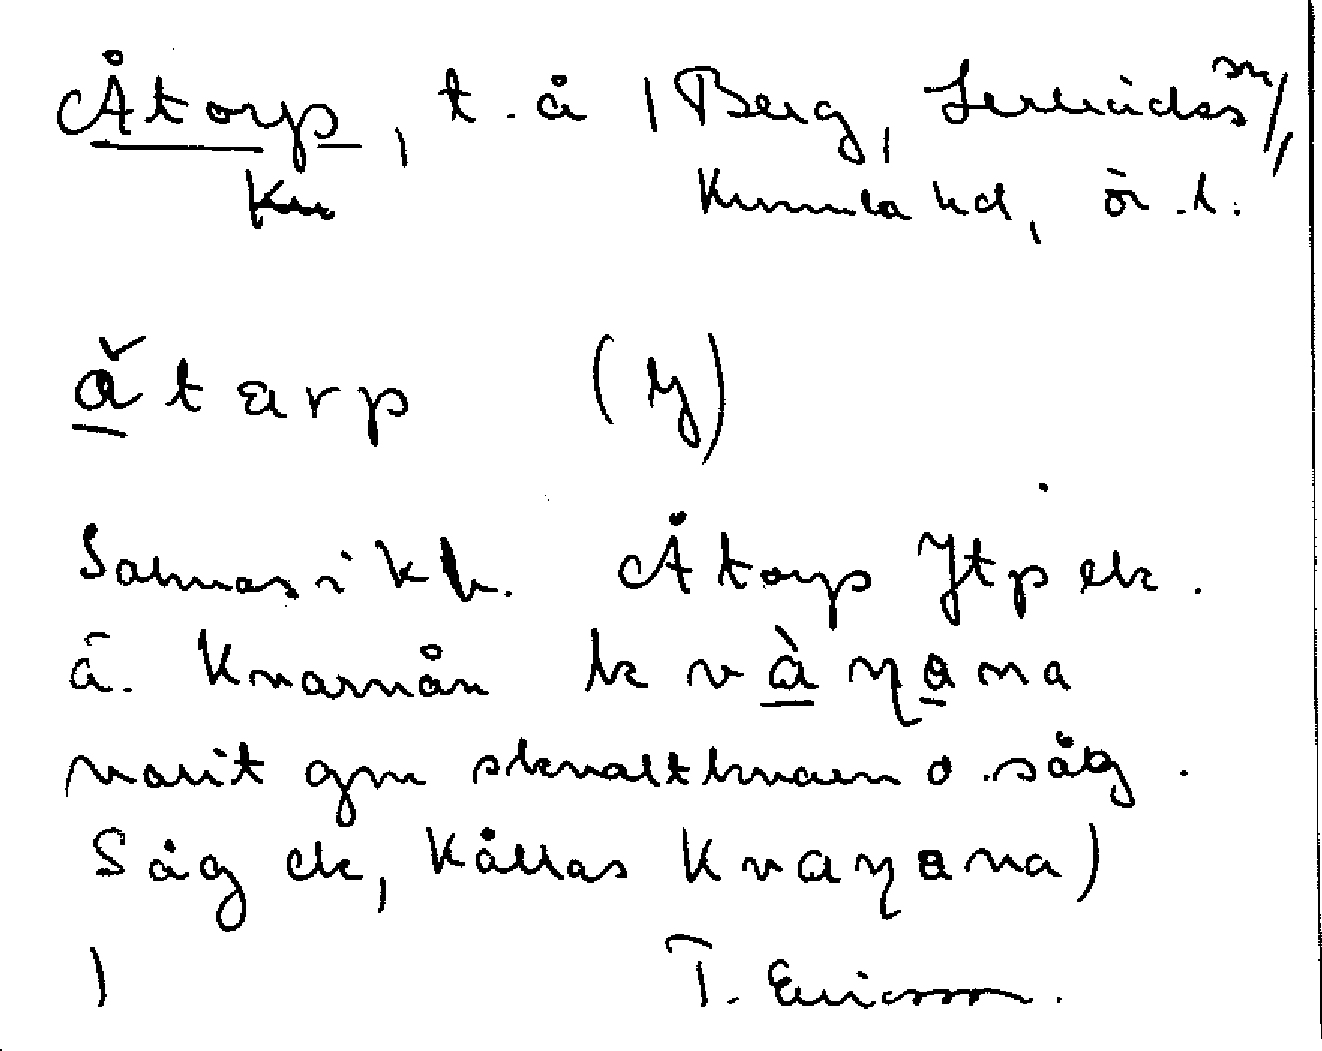 Åtorp, t. å / Berg, Lerbäcks sn/,
Ku Kumla hd, ör. l.
ǎtarp (y)
Saknas i kb. Åtorp Jtp ek.
å. Kvarnån kvàṇana
varit gm skvaltkvarn o. såg.
Såg ek, kallas Kvaṇana)
) T. Ericsson.